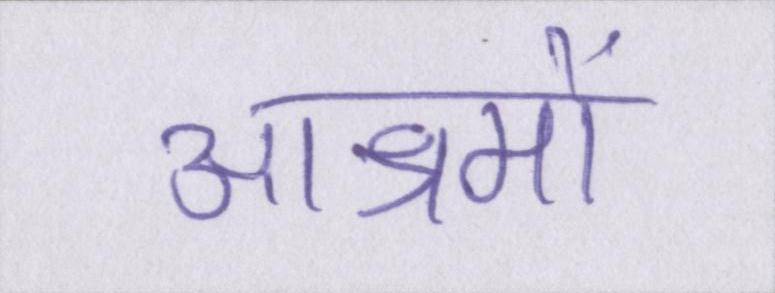 आश्रमों